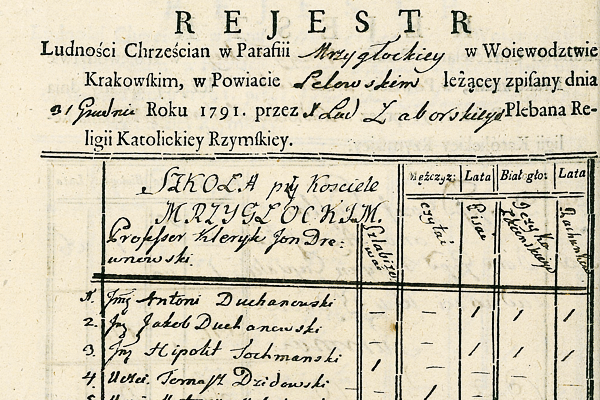 REJESTR
Ludności Chrześcian w Parafiii Mrzygłockiey w Woiewodztwie
Krakowſkim, w Powiacie Lelowskim leżącey zpiſany dnia
31 Grudnia Roku 1791. przez X Lud Zaborskiego Plebana Re-
ligii Katolickiey Rzymſkiey.
SZKOŁA przy Kosciele
MRZYGŁOCKIM.
Professor Kleryk Jon Dre:
wnowski.
Mężczyz: Lata Białgłoẛ Lata
Slabizować czytać Pisac Języka Rachunków
1. Jmć Antoni Duchanowski — — 1 1 1
2. Jmć Jakob Duchanowski — — 1 1 1
3. Jmć Hipolit Sochmanski 1 — — — 1
4. Uczci. Tomasz Dzidowski — 1 — — —